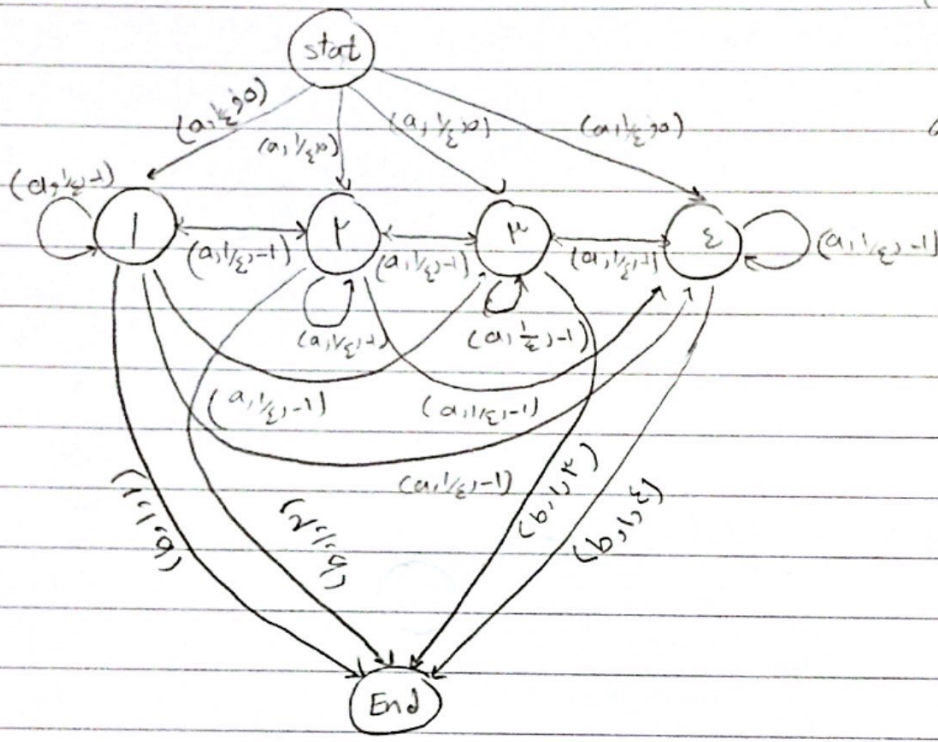 start
(a, 1/٤, 0)
(a, 1/٤, 0)
(a, 1/٤, 0)
(a, 1/٤, 0)
(a, 1/٤, -1)
١
٢
٣
٤
(a, 1/٤, -1)
(a, 1/٤, -1)
(a, 1/٤, -1)
(a, 1/٤, -1)
(a, 1/٤, -1)
(a, 1/٤, -1)
(a, 1/٤, -1)
(a, 1/٤, -1)
(a, 1/٤, -1)
(b, 1, 1)
(b, 1, 2)
(b, 1, ٣)
(b, 1, ٤)
End